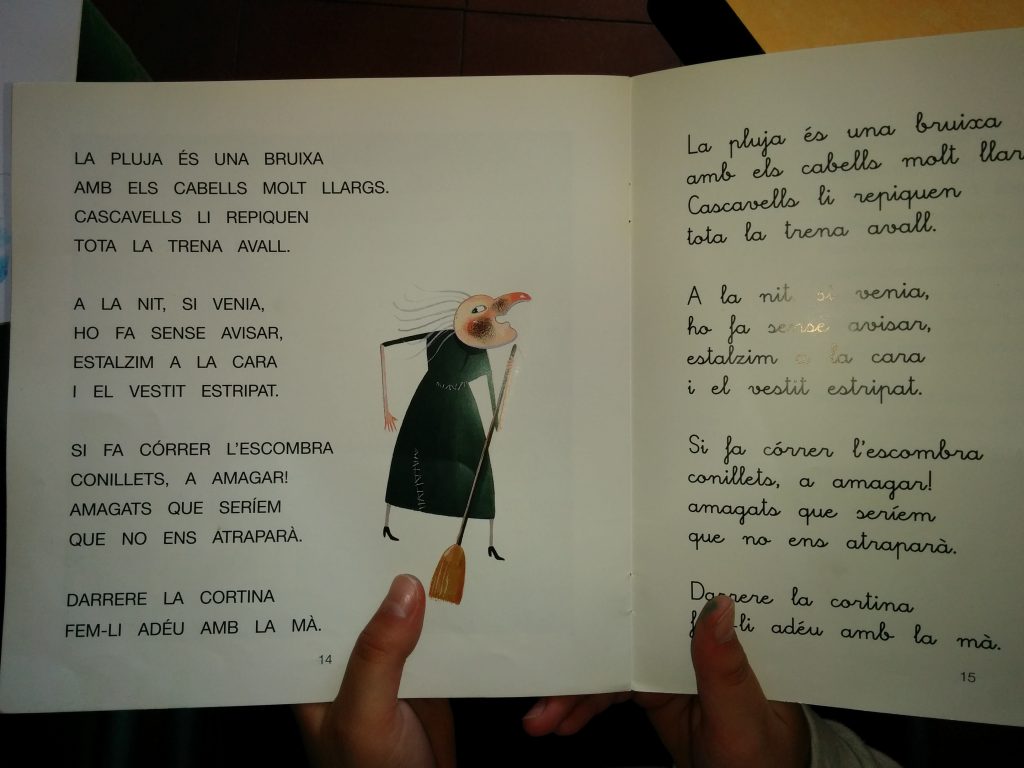 LA PLUJA ÉS UNA BRUIXA
AMB ELS CABELLS MOLT LLARGS.
CASCAVELLS LI REPIQUEN
TOTA LA TRENA AVALL.
A LA NIT, SI VENIA,
HO FA SENSE AVISAR,
ESTALZIM A LA CARA
I EL VESTIT ESTRIPAT.
SI FA CÓRRER L'ESCOMBRA
CONILLETS, A AMAGAR!
AMAGATS QUE SERÍEM
QUE NO ENS ATRAPARÀ.
DARRERE LA CORTINA
FEM-LI ADÉU AMB LA MÀ.
14
La pluja és una bruixa
amb els cabells molt llar
Cascavells li repiquen
tota la trena avall.
A la nit, si venia,
ho fa sense avisar,
estalzim a la cara
i el vestit estripat.
Si fa córrer l'escombra
conillets, a amagar!
amagats que seríem
que no ens atraparà.
Darrere la cortina
fem-li adéu amb la mà.
15